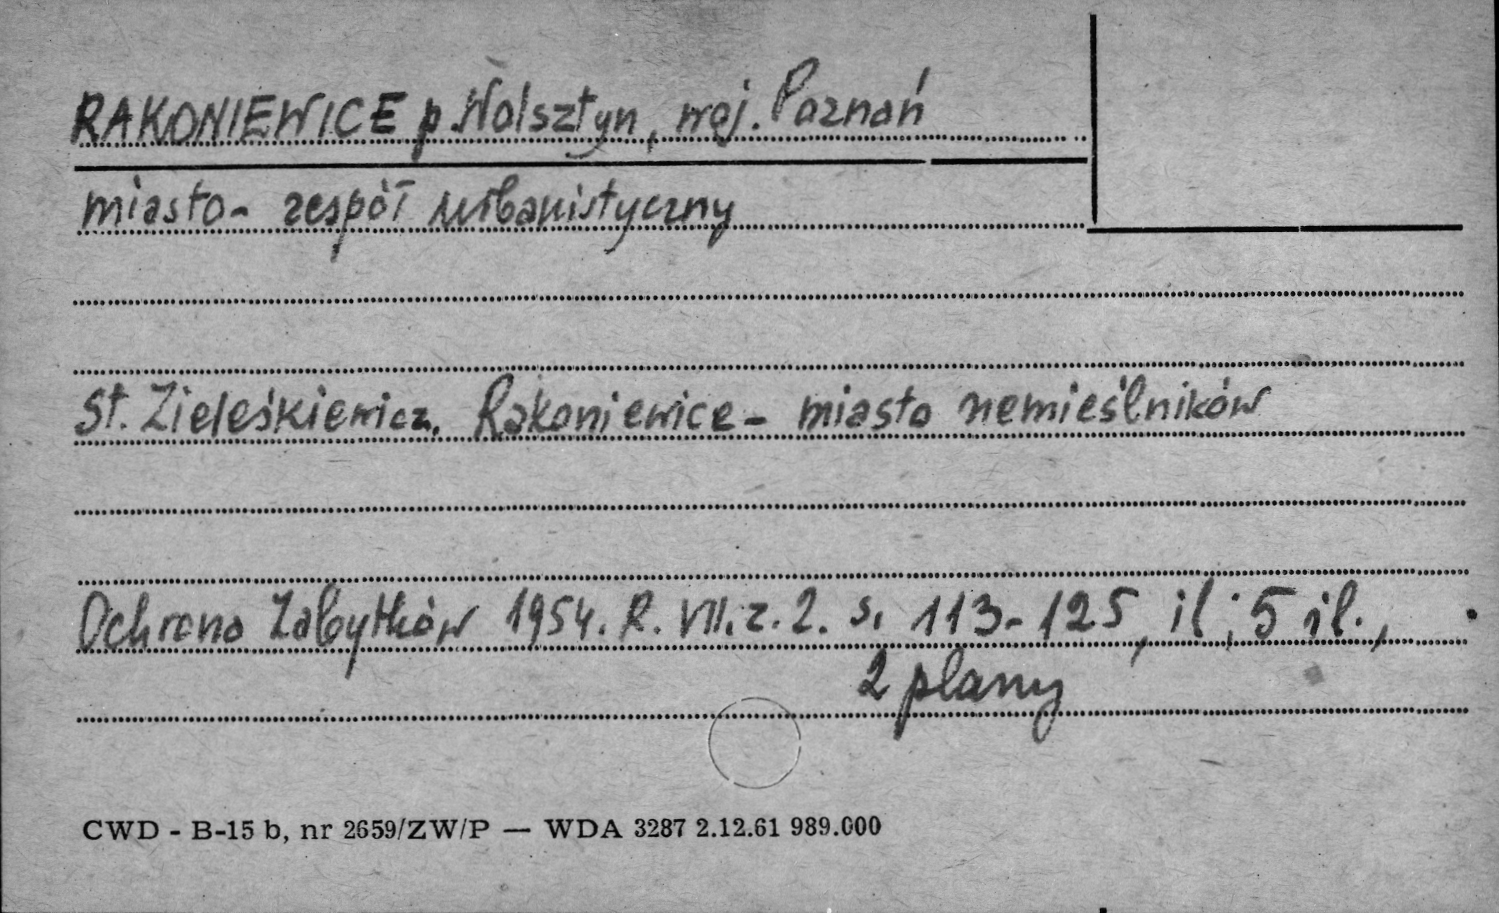 RAKONIEWICE p. Wolsztyn, woj. Poznań
miasto - zespół urbanistyczny
St. Zieleśkiewicz. Rakoniewice - miasto rzemieślników
Ochrona Zabytków 1954. R. VII. z. 2. s. 113-125, il; 5 il.,
2 plany
CWD - B-15 b, nr 2659/ZW/P — WDA 3287 2.12.61 989.000